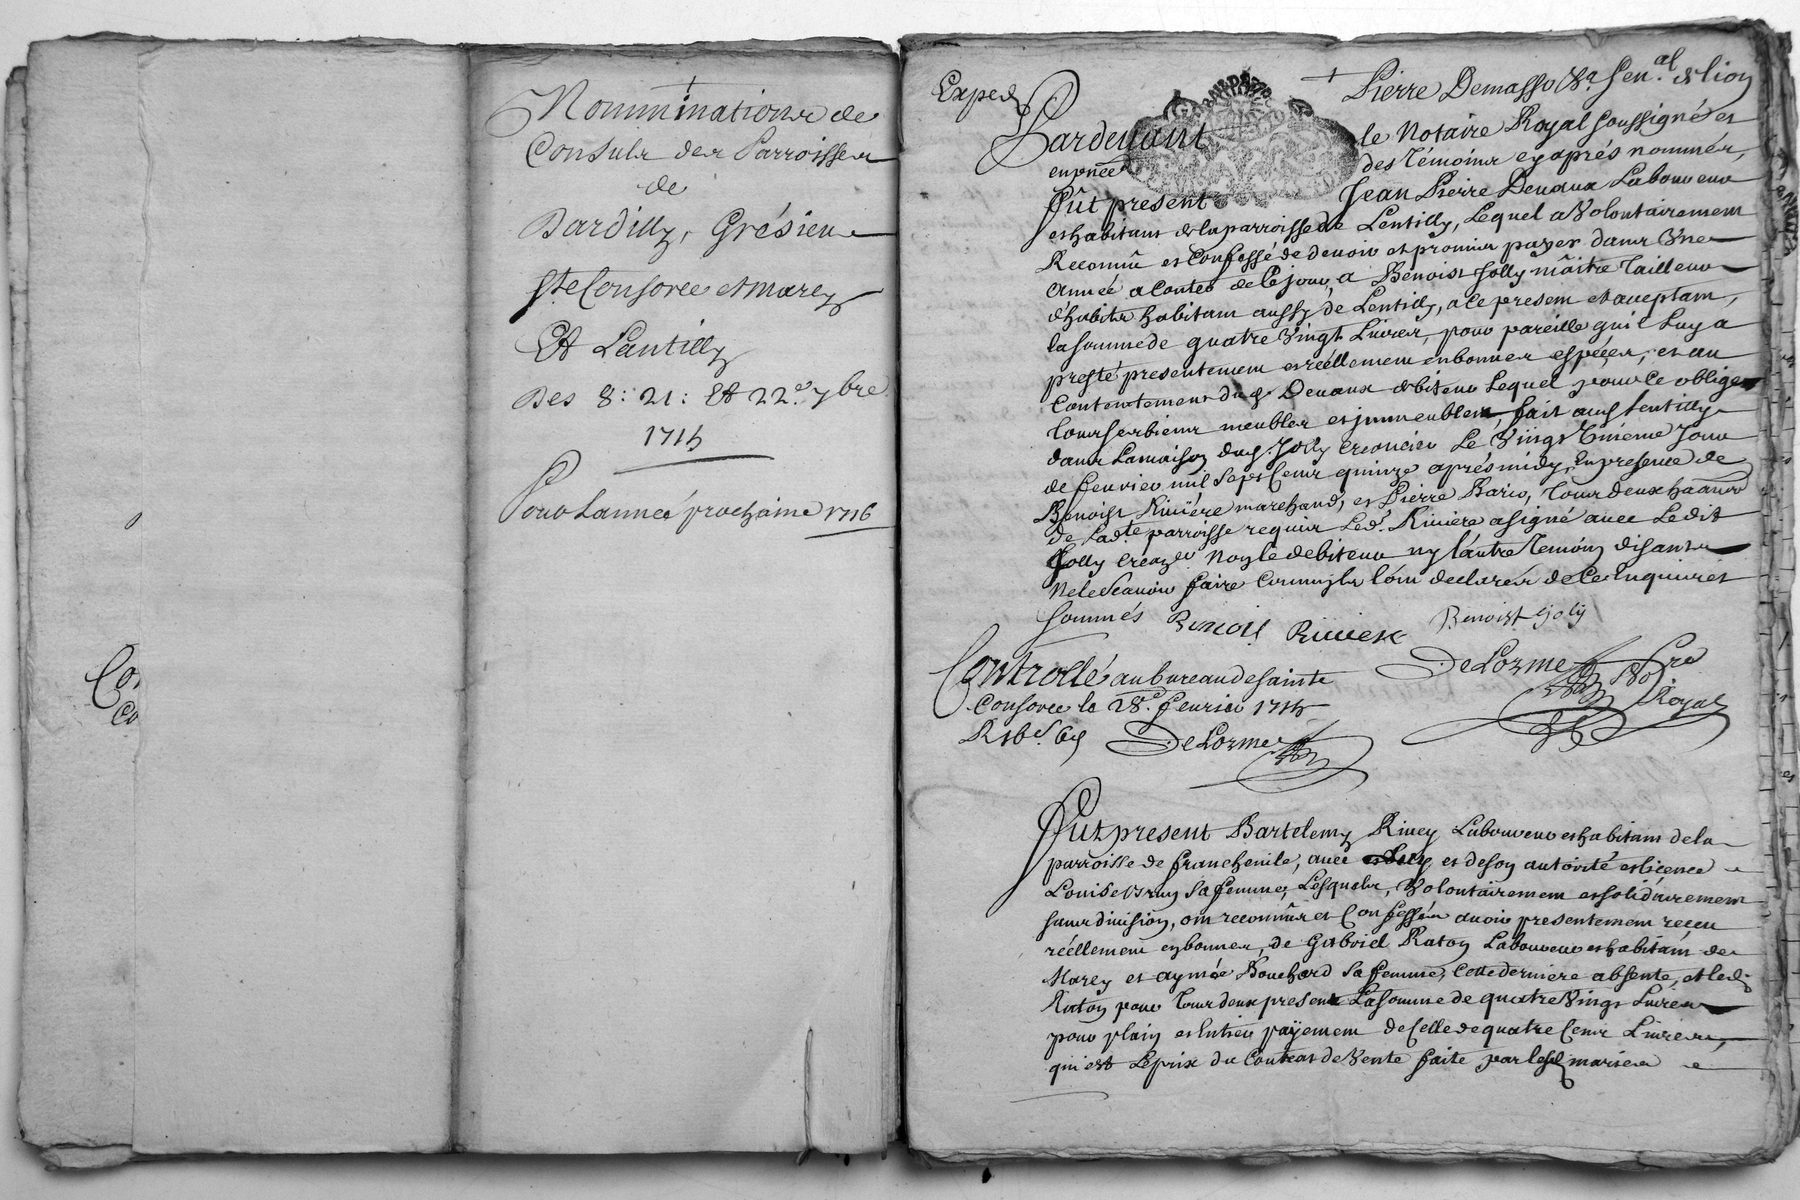 Nomminations de
Consuls des Parroisses
de
Dardilly, Grésieu
Ste Consorce et Marcy
Et Lentilly
Des 8: 21: Et 22.e 7bre
1715
Pour Lannée prochaine 1716
Co
co
Exped
Pierre Demasso Sen.al de lion
Pardevant le Notaire Royal soussigné et
en pnce des Témoins cy aprés nommés,
fût present Jean Pierre Devaux Laboureur
et habitant de la parroisse de Lentilly, Lequel a Volontairement
Reconnû et Confessé de devoir et promis payer dans Une
Année a Conter de Ce jour, a Benoist Jolly mâitre Tailleur
d'habits habitant aussy de Lentilly, a Ce present et acceptant,
la somme de quatre Vingt Livres, pour pareille qu'il Luy a
presté presentement et réellement en bonnes espéces, et au
Contentement dud. Devaux debiteur Lequel pour Ce oblige
tous ses biens meubles et jmmeubles, fait aud. Lentilly
dans La maison dud. Jolly Creancier Le Vingt
de fevrier mil sept Cent quinze aprés midy, En presence de
Benoist Riviére marchand, et Pierre Tous deux
de Lad.te parroisse requis Led. Riviére a signé avec Ledit
Jolly Crean.er Non le debiteur ny l'autre Témoin disants
Ne le Scavoir faire Comm'jls l'ont declarés de Ce Enquis et
sommés Benoist Riviere Benoist Joly
Controllé au bureau de sainte
Consorce le 28.e fevrier 1715
DeLorme Royal
DeLorme
Fut present Bartelemy Rivey Laboureur et habitant de la
parroisse de francheuile, avec et de son autorité et licence
Louise sa femme, Lesquels, Volontairement et solidairement
sans division, ont reconnûs et Confessés avoir presentement receu
réellement en bonnes, de Gabriel Raton Laboureur et habitant de
Marcy et aymée Bouchard sa femme, Cette derniere absente, et led.
Raton pour Tous deux present La somme de quatre Vingt Livres
pour plain et Entier payement de Celle de quatre Cent Livres,
qui est Le prix du Contrat de Vente faite par lesd. mariés